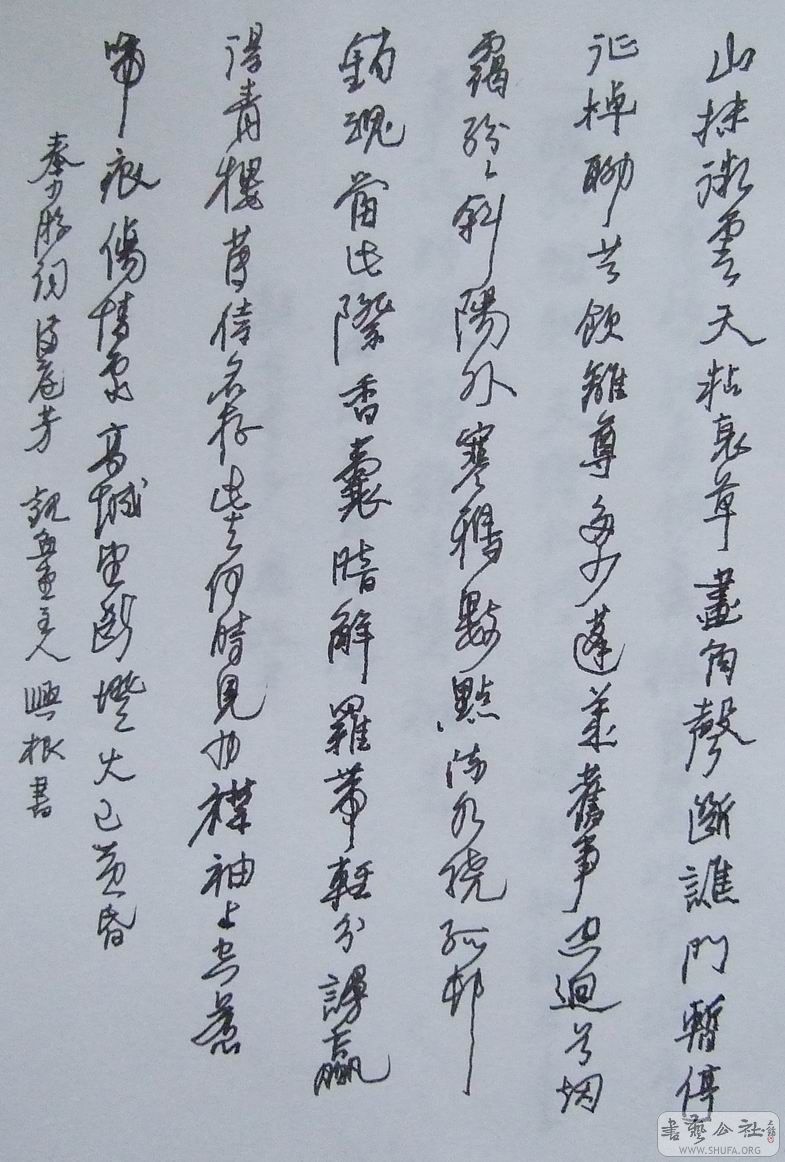 山抹微雲天粘衰草畫角聲斷譙門暫停
征棹聊共飲離尊多少蓬萊舊事空迴首烟
靄紛紛斜陽外寒鴉數點流水繞孤邨
銷魂當此際香囊暗解羅帶輕分謾贏
得青樓薄倖名存此去何時見也襟袖上空惹
啼痕傷情處高城望斷燈火已黃昏
秦少游詞滿庭芳 主人興根書
書藝公社
WWW.SHUFA.ORG